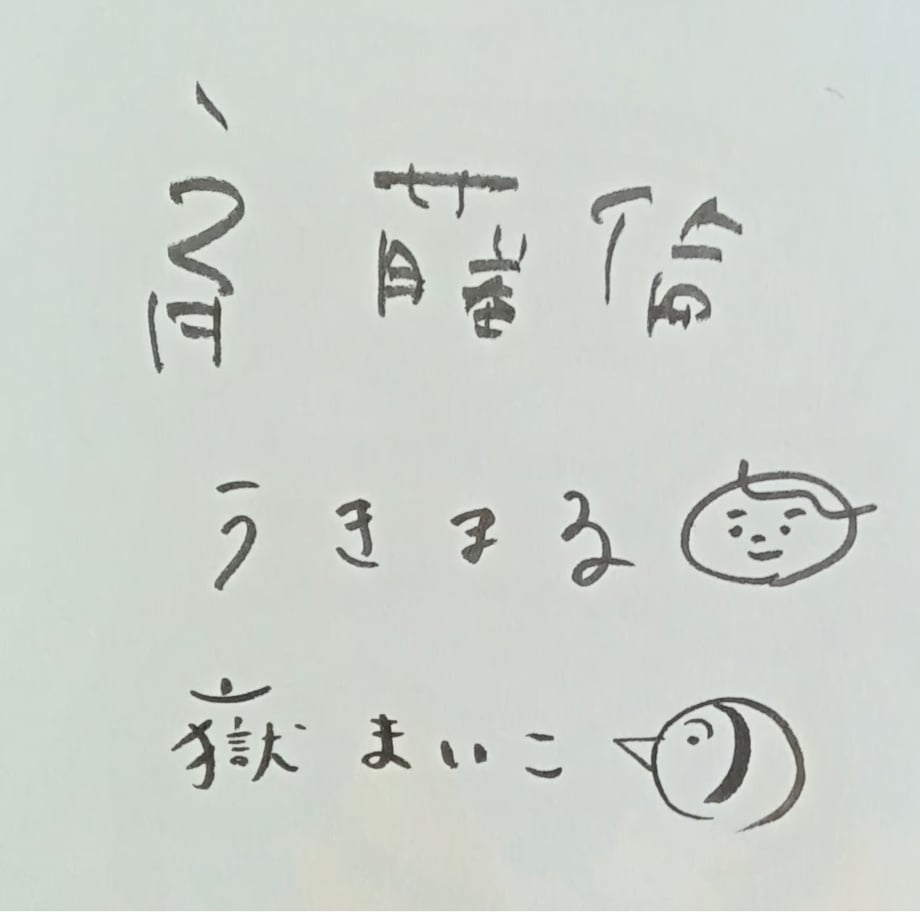 斉藤倫
うきまる
嶽まいこ